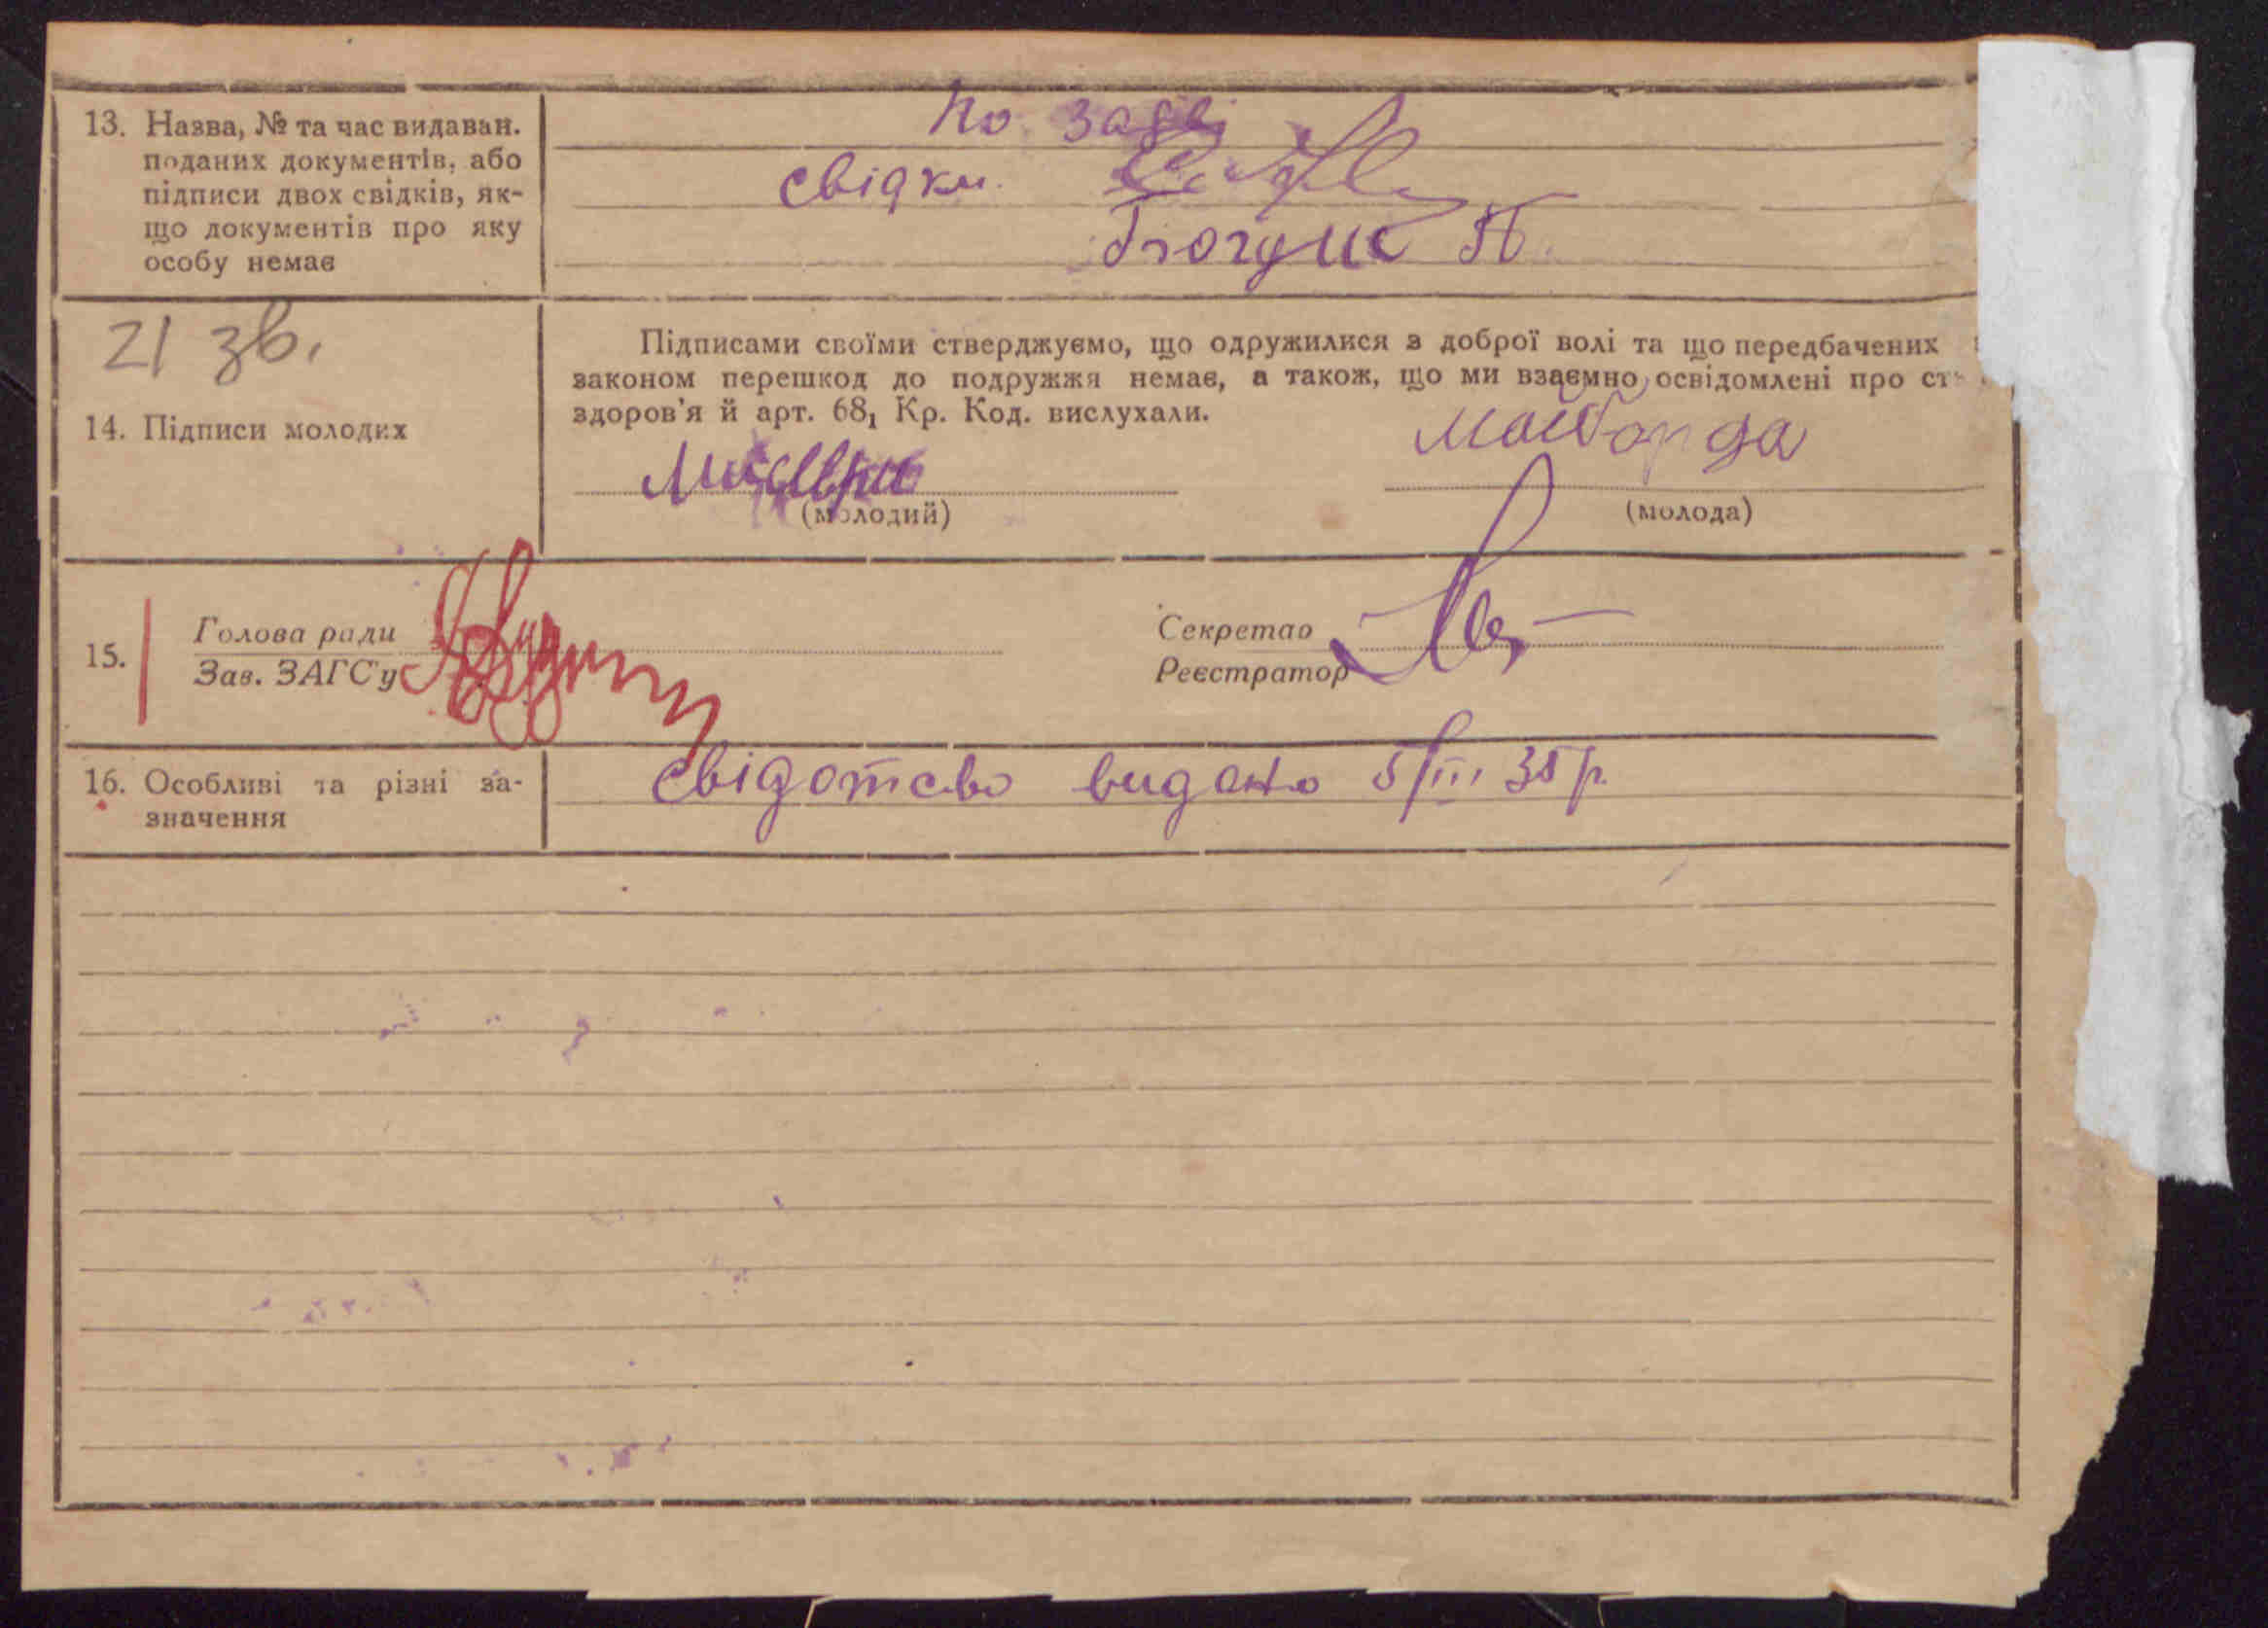 13. Назва, № та час видаван.
поданих документів, або
підписи двох свідків, як-
що документів про яку
особу немає
по заяві
свідки
21 зв.
14. Підписи молодих
Підписами своїми стверджуємо, що одружилися з доброї волі та що передбачених
законом перешкод до подружжя немає, а також, що ми взаємно освідомлені про ст
здоров'я й арт. 68₁ Кр. Код. вислухали.
Майборода
(молодий)
(молода)
15.
Голова ради
Зав. ЗАГС'у
Секретар
Реєстратор
16. Особливі та різні за-
значення
свідотство видано 5/III 35 р.